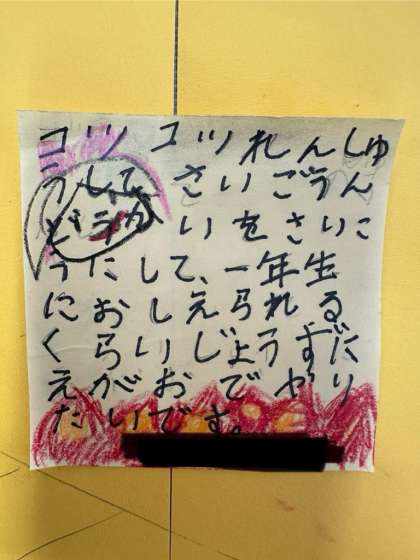 コツコツれんしゅ
うして、さいごうん
どうかいをさいこ
うにして、一年生
におしえられる
くらいじょうずに
えがおでやり
たいです。